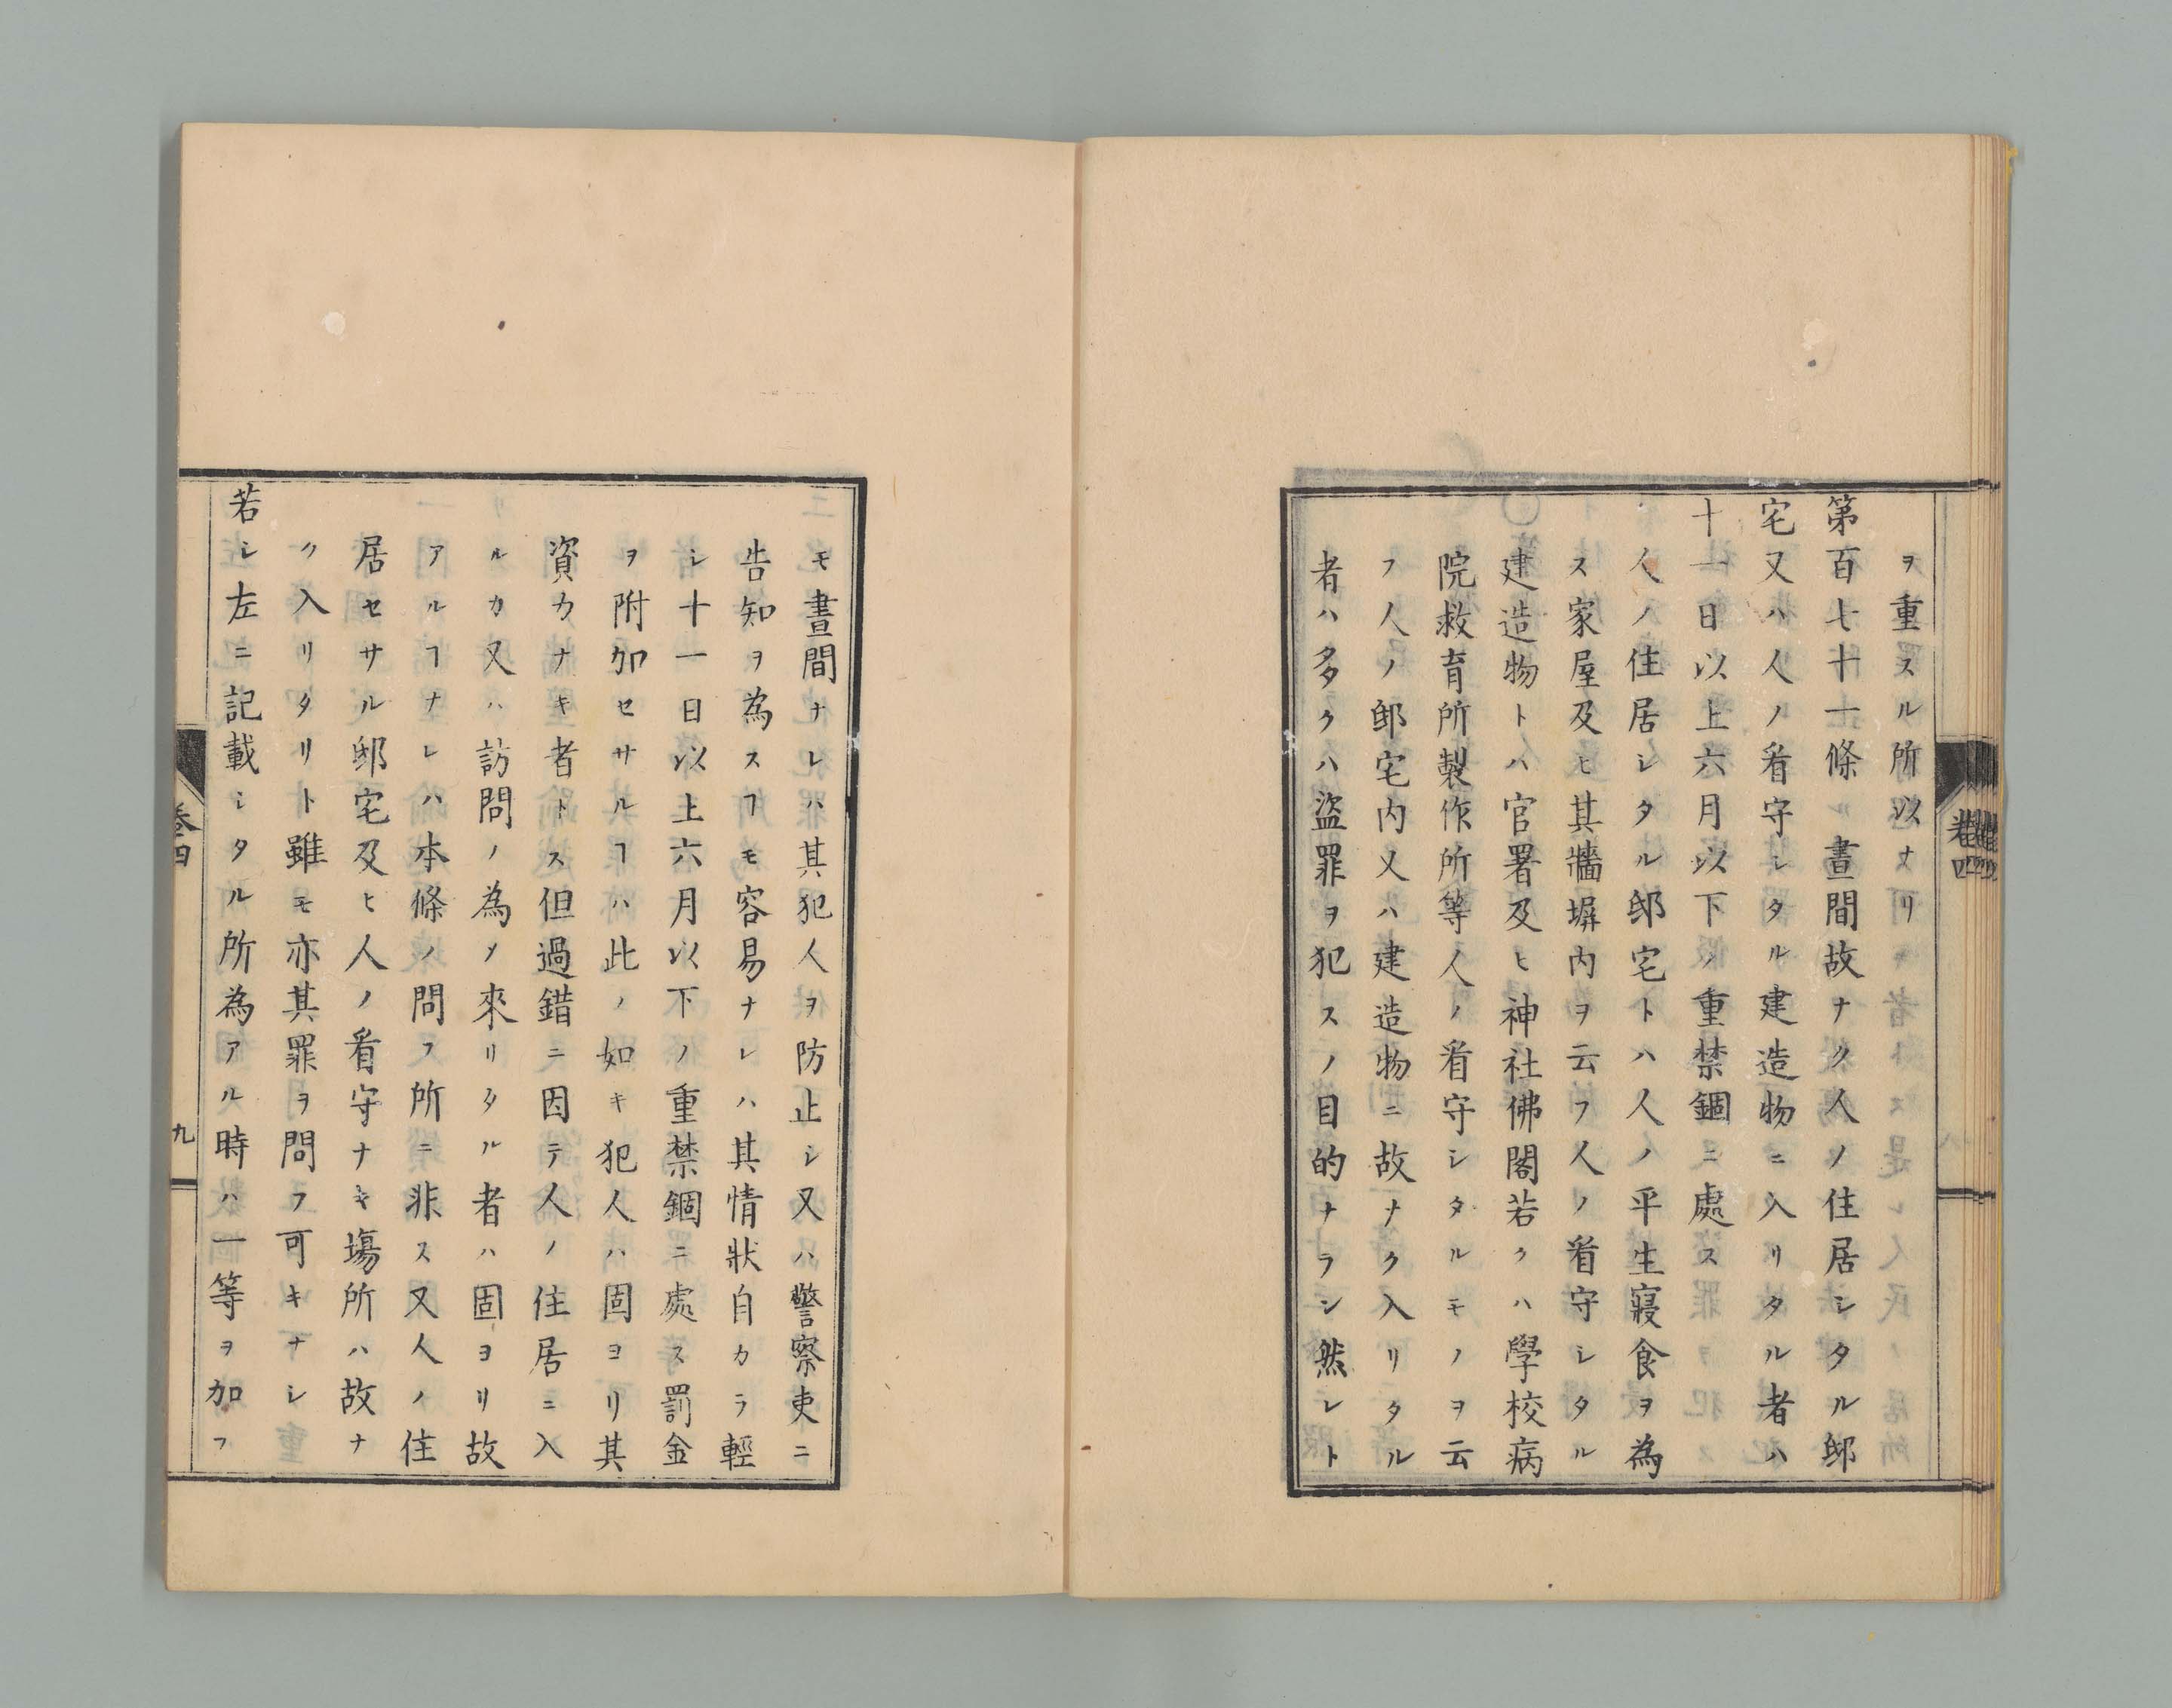 ヲ重スル所以ナリ
第百七十一條 晝間故ナク人ノ住居シタル邸
宅又ハ人ノ看守シタル建造物ニ入リタル者ハ
十一日以上六月以下ノ重禁錮ニ處ス
人ノ住居シタル邸宅トハ人ノ平生寢食ヲ為
ス家屋及ヒ其牆塀内ヲ云フ人ノ看守シタル
建造物トハ官署及ヒ神社佛閣若クハ學校病
院救育所製作所等人ノ看守シタルモノヲ云
フ人ノ邸宅内又ハ建造物ニ故ナク入リタル
者ハ多クハ盜罪ヲ犯スノ目的ナラン然レト
モ晝間ナレハ其犯人ヲ防止シ又ハ警察吏ニ
告知ヲ為スヿモ容易ナレハ其情狀自カラ輕
シ十一日以上六月以下ノ重禁錮ニ處ス罰金
ヲ附加セサルヿハ此ノ如キ犯人ハ固ヨリ其
資力ナキ者トス但過錯ニ因テ人ノ住居ニ入
ルカ又ハ訪問ノ為メ來リタル者ハ固ヨリ故
アルヿナレハ本條ノ問フ所ニ非ス又人ノ住
居セサル邸宅及ヒ人ノ看守ナキ塲所ハ故ナ
ク入リタリト雖モ亦其罪ヲ問フ可キナシ
若シ左ニ記載シタル所為アル時ハ一等ヲ加フ
卷四
九